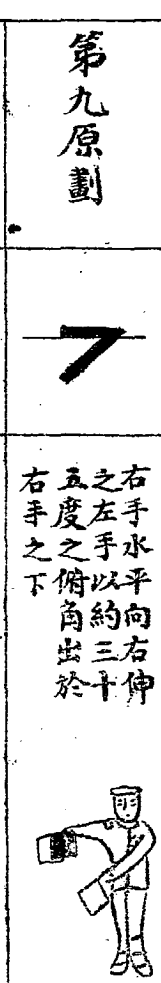 第九原劃
右手水平向右伸
之左手以約三十
五度之俯角出於
右手之下